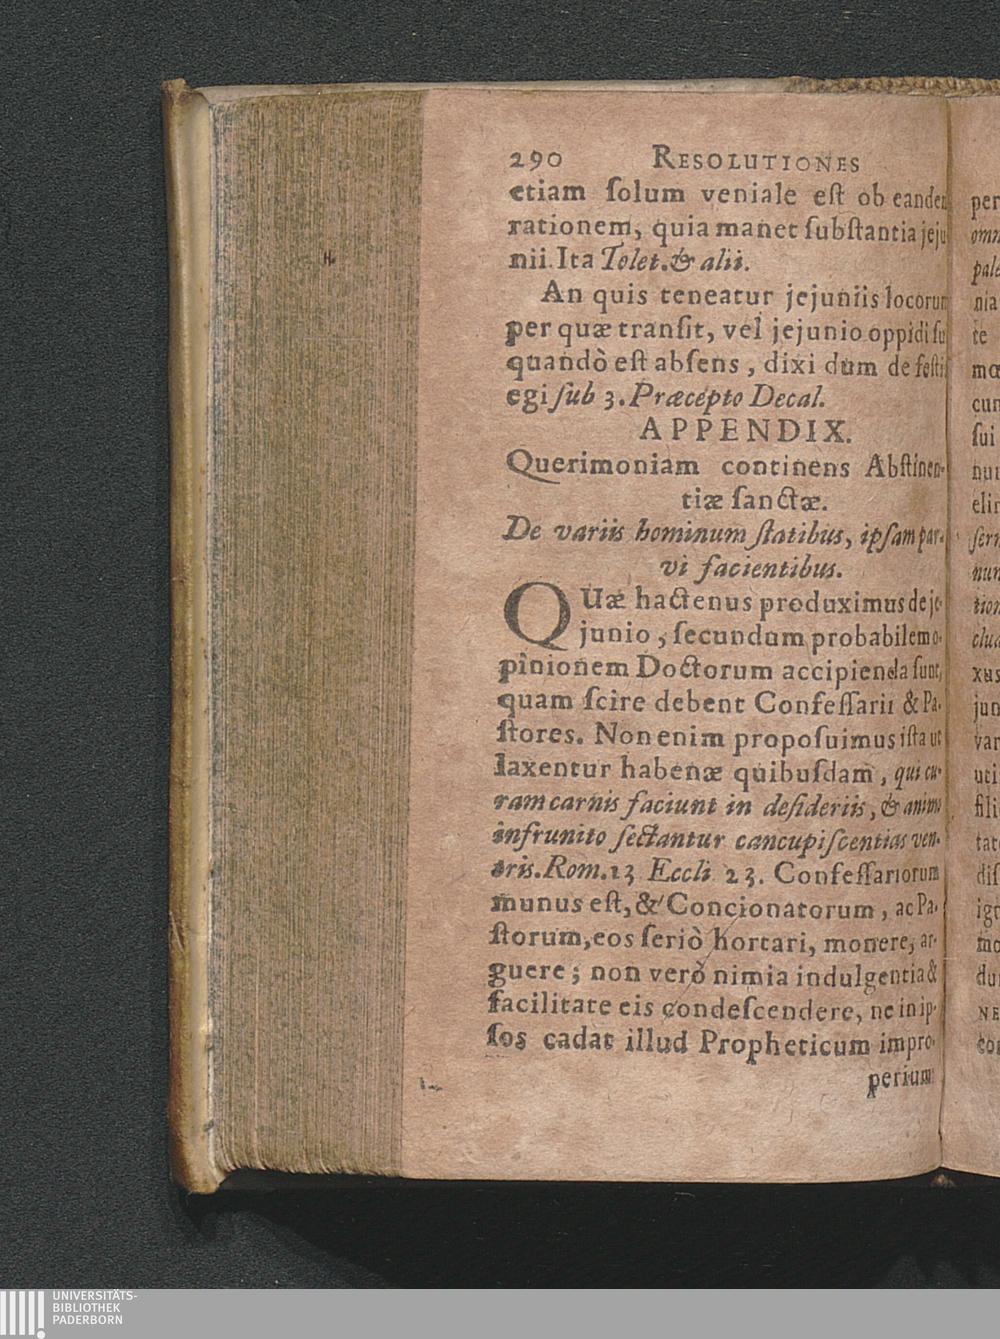 290 RESOLUTIONES
etiam ſolum veniale eſt ob eandem
rationem, quia manet ſubſtantia jeju
nii. Ita Tolet. & alii.
An quis teneatur jejuniis locorum
per quæ tranſit, vel jejunio oppidi ſu
quandò eſt abſens, dixi dum de feſti
egi ſub 3. Præcepto Decal.
APPENDIX.
Querimoniam continens Abſtinen-
tiæ ſanctæ.
De variis hominum ſtatibus, ipſam par-
vi facientibus.
QUæ hactenus produximus de je-
junio, ſecundum probabilem o-
pinionem Doctorum accipienda ſunt,
quam ſcire debent Confeſſarii & Pa-
ſtores. Non enim propoſuimus iſta ut
laxentur habenæ quibuſdam, qui cu-
ram carnis faciunt in deſideriis, & animo
infrunito ſectantur cancupiſcentias ven-
tris. Rom. 13 Eccli 23. Confeſſariorum
munus eſt, & Concionatorum, ac Pa-
ſtorum, eos ſeriò hortari, monere, ar-
guere; non verò nimia indulgentia &
facilitate eis condeſcendere, ne in ip-
ſos cadat illud Propheticum impro-
perium
per
omn
nia
te
cun
ſui
jun
var
uti
fili
dif
UNIVERSITÄTS-
BIBLIOTHEK
PADERBORN